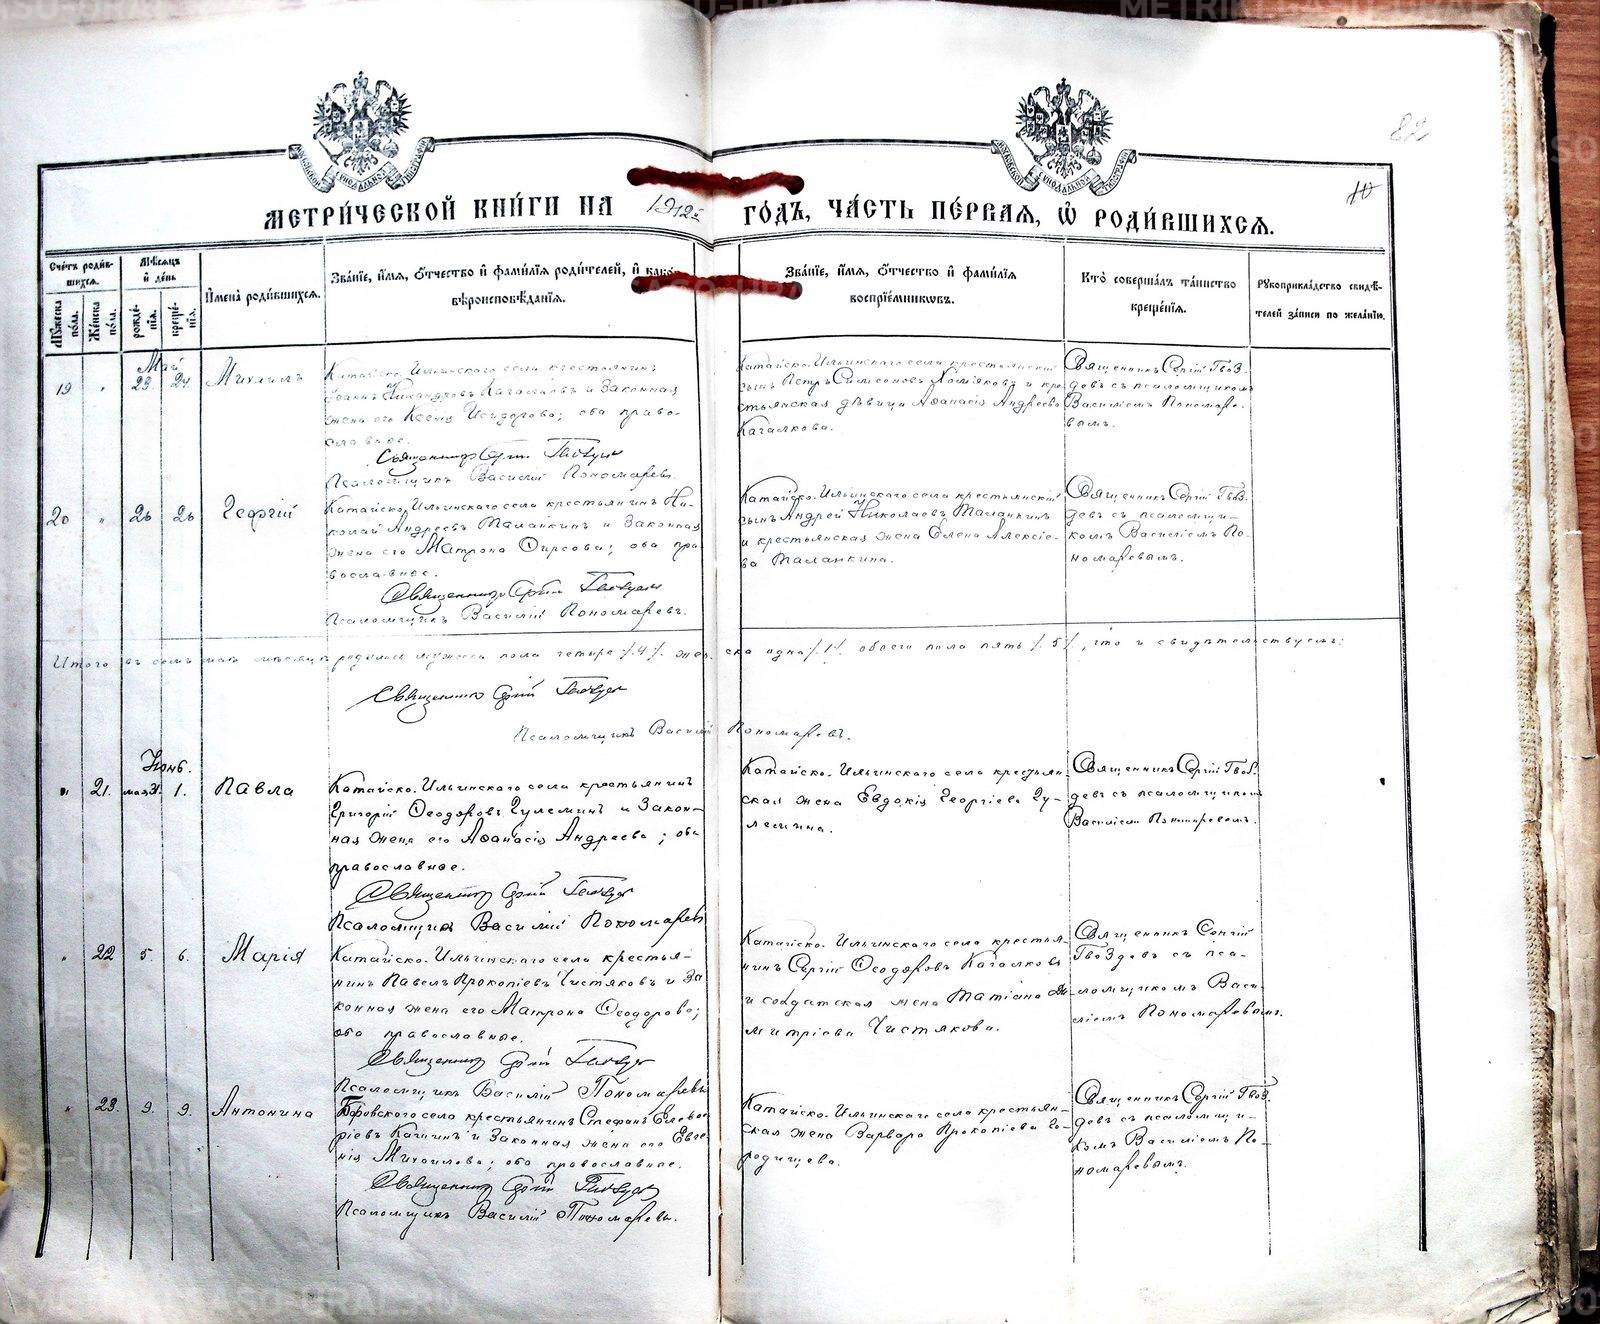 METRIKI.GASO-URAL.RU
82
10
МЕТРИ́ЧЕСКОЙ КНИ́ГИ НА 1912й ГО́ДЪ, ЧА́СТЬ ПЕ́РВАЯ, Ѡ҆ РОДИ́ВШИХСЯ.
Сче́тъ роди́вшихся.
Му́жеска по́ла.
Же́нска по́ла.
Мѣ́сяцъ и҆ де́нь
рожде́нїя.
креще́нїя.
И҆мена̀ роди́вшихся.
Зва́нїе, и҆́мя, ѻ҆́тчество и҆ фами́лїя роди́телей, и҆ како́го
вѣроисповѣ́данїя.
Зва́нїе, и҆́мя, ѻ҆́тчество и҆ фами́лїя
воспрїе́мниковъ.
Кто̀ соверша́лъ та́инство
креще́нїя.
Рукоприкла́дство свидѣ́-
телей за́писи по жела́нїю.
Май
19 " 23 24 Михаилъ
Катайско-Ильинскаго села крестьянинъ
Іоаннъ Никандровъ Качалковъ и законная
жена его Ксенія Исидорова; оба право-
славные.
Священникъ Сергій Гвоздевъ
Псаломщикъ Василій Пономаревъ.
Катайско-Ильинскаго села крестьянскій
сынъ Петръ Симеоновъ Хомяковъ и кре-
стьянская дѣвица Аѳанасія Андреева
Качалкова.
Священникъ Сергій Гвоз-
девъ съ псаломщикомъ
Василіемъ Пономаре-
вымъ.
20 " 26 26 Георгій
Катайско-Ильинскаго села крестьянинъ Ни-
колай Андреевъ Таланкинъ и законная
жена его Матрона Фирсова; оба пра-
вославные.
Священникъ Сергій Гвоздевъ
Псаломщикъ Василій Пономаревъ.
Катайско-Ильинскаго села крестьянскій
сынъ Андрей Николаевъ Таланкинъ
и крестьянская жена Елена Алексіе-
ва Таланкина.
Священникъ Сергій Гвоз-
девъ съ псаломщи-
комъ Василіемъ По-
номаревымъ.
Итого въ семъ маѣ мѣсяцѣ родилось мужеска пола четыре /.4/. женска одна /.1/. обоего пола пять /.5/., что и свидѣтельствуемъ:
Священникъ Сергій Гвоздевъ
Псаломщикъ Василій Пономаревъ.
Іюнь.
" 21. мая 31. 1. Павла
Катайско-Ильинскаго села крестьянинъ
Григорій Ѳеодоровъ Гулеминъ и закон-
ная жена его Аѳанасія Андреева; оба
православное.
Священникъ Сергій Гвоздевъ
Псаломщикъ Василій Пономаревъ
Катайско-Ильинскаго села крестьян-
ская жена Евдокія Георгіева Гу-
лемина.
Священникъ Сергій Гвоз-
девъ съ псаломщикомъ
Василіемъ Пономаревымъ.
" 22 5. 6. Марія
Катайско-Ильинскаго села крестья-
нинъ Павелъ Прокопіевъ Чистяковъ и за-
конная жена его Матрона Ѳеодорова;
оба православные.
Священникъ Сергій Гвоздевъ
Псаломщикъ Василій Пономаревъ
Катайско-Ильинскаго села крестья-
нинъ Сергій Ѳеодоровъ Качалковъ
и солдатская жена Татіана Ди-
митріева Чистякова.
Священникъ Сергій
Гвоздевъ съ пса-
ломщикомъ Васи-
ліемъ Пономаревымъ.
" 23. 9. 9. Антонина
Боровского села крестьянинъ Стефанъ Елевѳе-
ріевъ Качинъ и законная жена его Евге-
нія Михаилова; оба православные.
Священникъ Сергій Гвоздевъ
Псаломщикъ Василій Пономаревъ.
Катайско-Ильинскаго села крестьян-
ская жена Варвара Прокопіева Го-
родищева.
Священникъ Сергій Гвоз-
девъ съ псаломщи-
комъ Василіемъ По-
номаревымъ.
METRIKI.GASO-URAL.RU